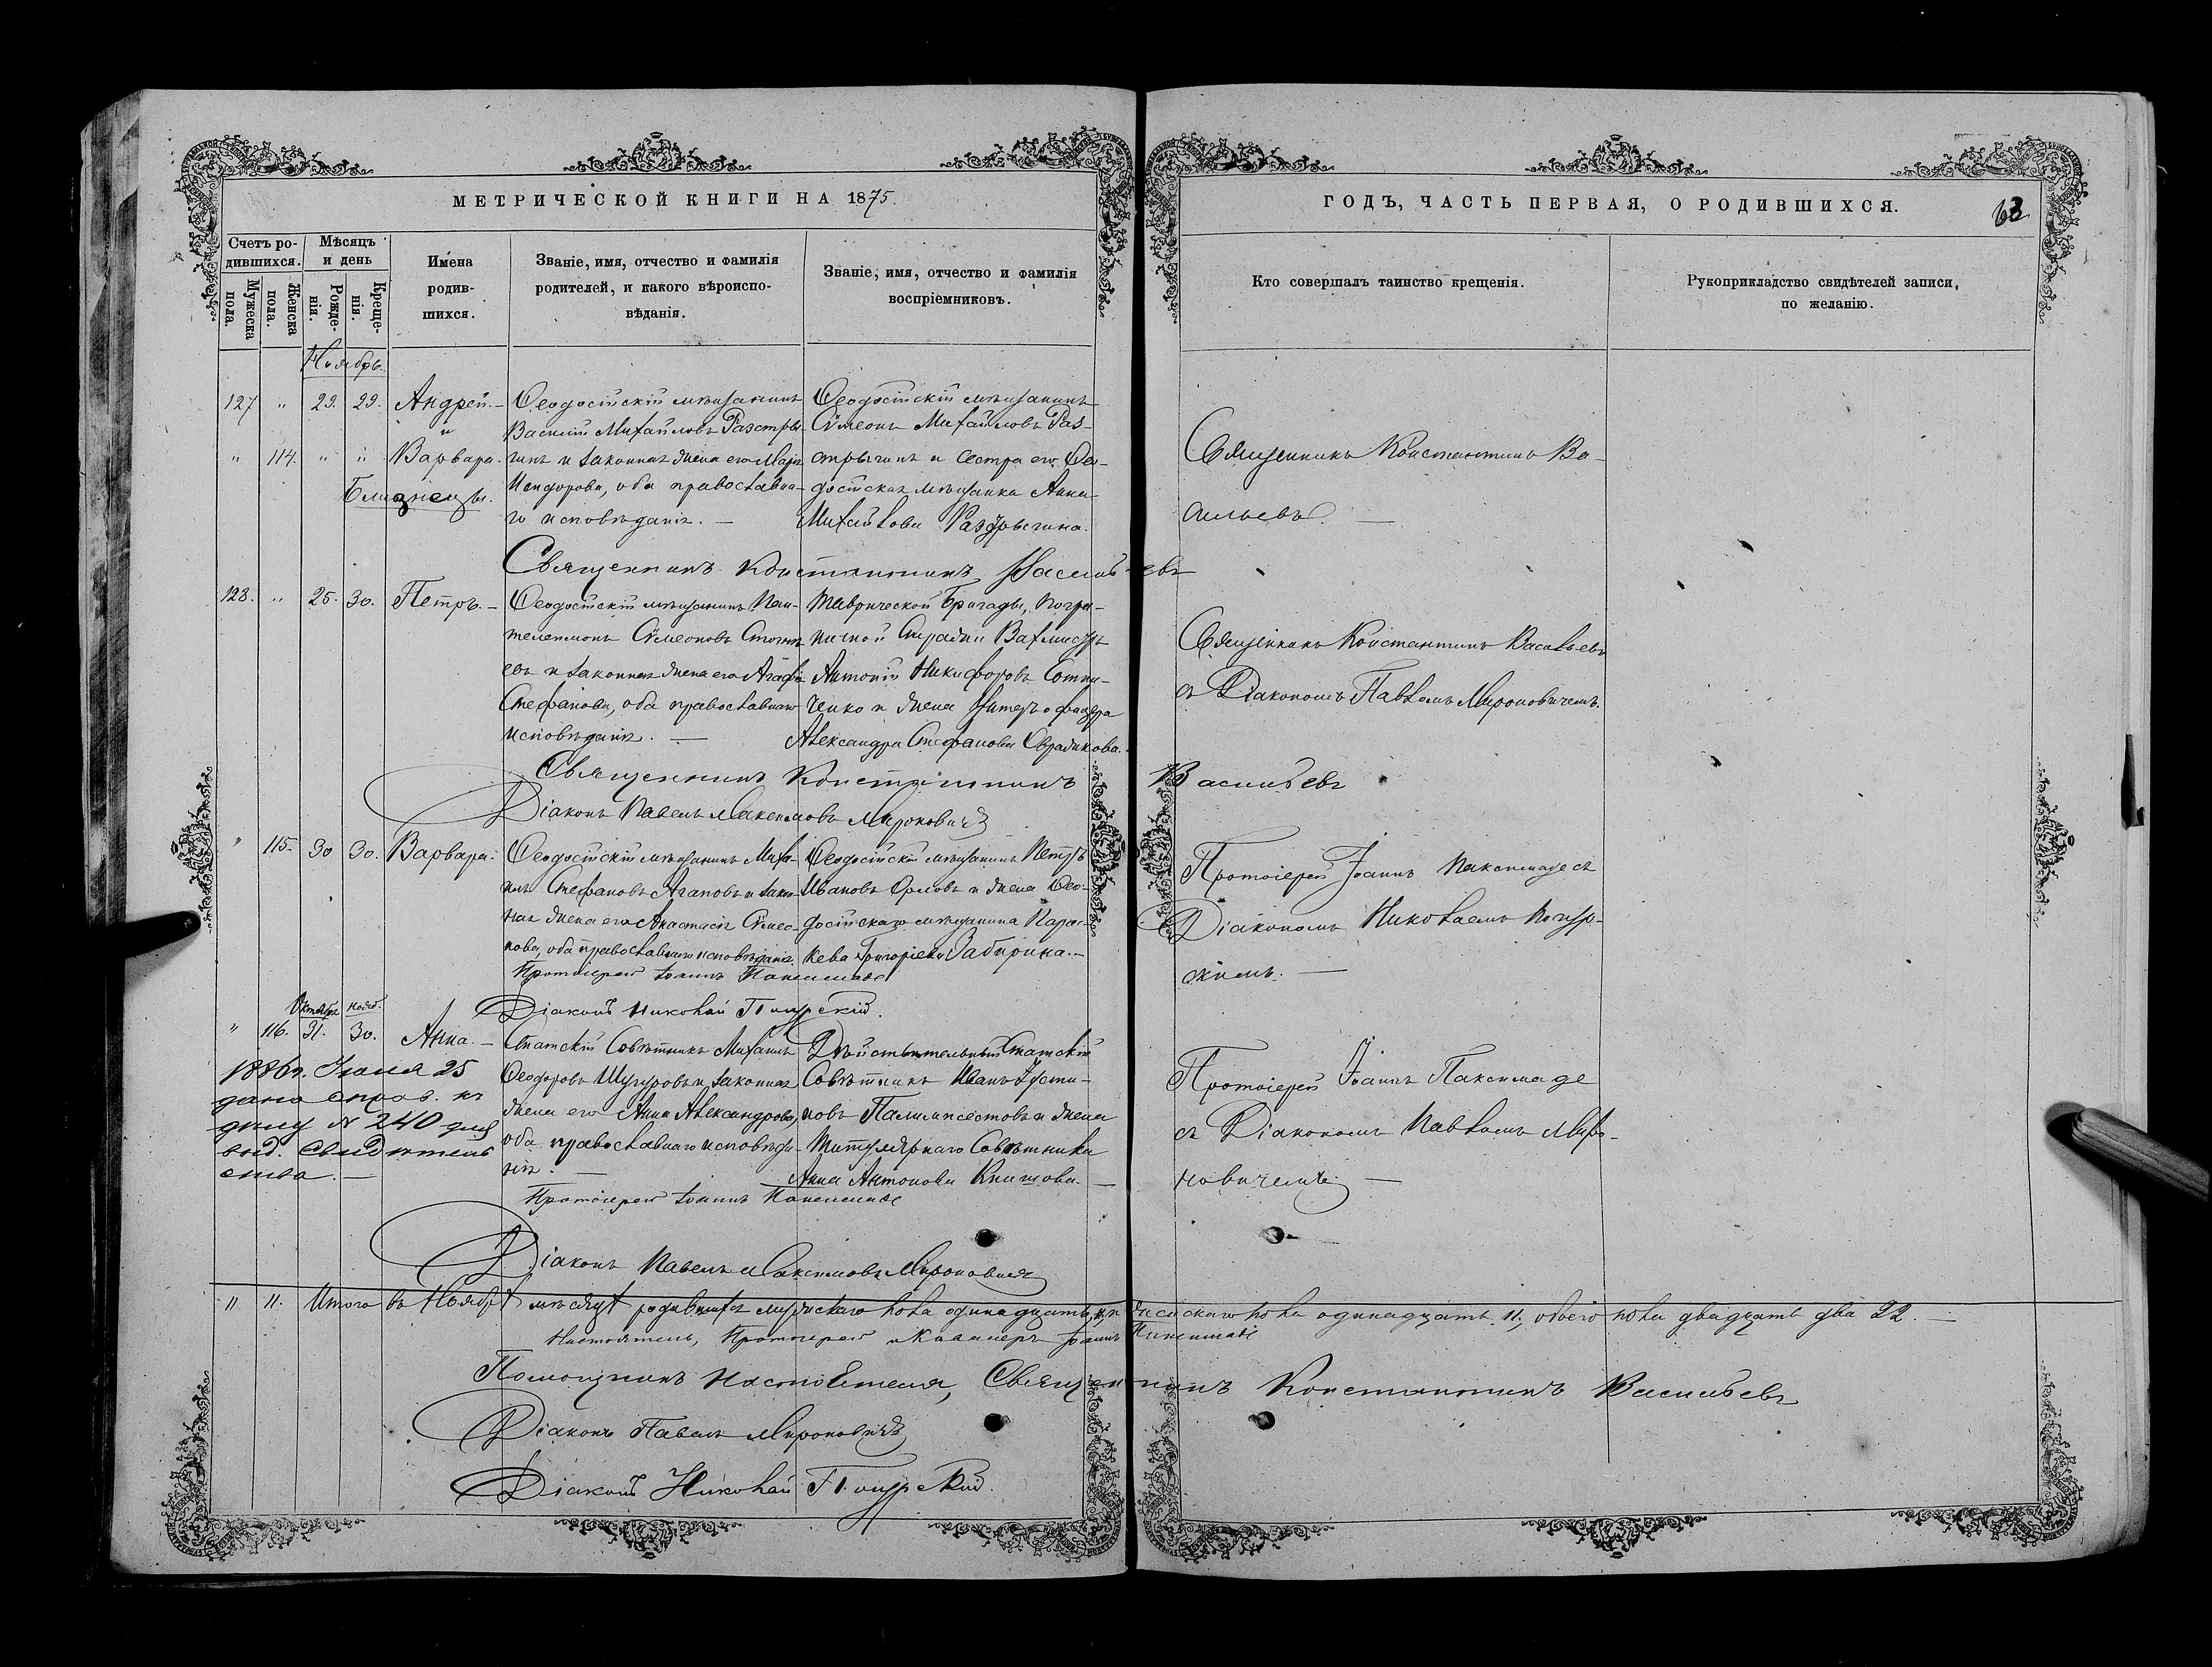 МЕТРИЧЕСКОЙ КНИГИ НА 1875.
Счетъ родившихся.
Мужеска пола.
Женска пола.
Мѣсяцъ и день
Рожденія.
Крещенія.
Имена родившихся.
Званіе, имя, отчество и фамилія родителей, и какого вѣроисповѣданія.
Званіе, имя, отчество и фамилія воспріемниковъ.
ГОДЪ, ЧАСТЬ ПЕРВАЯ, О РОДИВШИХСЯ.
63
Кто совершалъ таинство крещенія.
Рукоприкладство свидѣтелей записи, по желанію.
Ноябрь.
127 " 29. 29. Андрей. —
и
" 114. " " Варвара.
Близнецы.
Ѳеодосійскій мѣщанинъ
Василій Михайловъ Разстры-
гинъ и законная жена его Марія
Исидорова, оба православна-
го исповѣданія. —
Ѳеодосійскій мѣщанинъ
Сѵмеонъ Михайловъ Раз-
стрыгинъ и сестра его Ѳео-
досійская мѣщанка Анна
Михайлова Разстрыгина.
Священникъ Константинъ Ва-
сильевъ. —
Священникъ Константинъ Васильевъ
128. " 25. 30. Петръ. —
Ѳеодосійскій мѣщанинъ Пан-
телеимонъ Сѵмеоновъ
евъ и законная жена его Агафія
Стефанова, оба православнаго
исповѣданія. —
Таврической Бригады, погра-
ничной Стражи Вахмистръ
Антоній Никифоровъ Сотни-
ченко и жена Унтеръ офицера
Александра Стефанова
Священникъ Константинъ Васильевъ
съ Діакономъ Павломъ Мироновичемъ.
Священникъ Константинъ Васильевъ
Діаконъ Павелъ Максимовъ Мироновичъ
" 115. 30 30. Варвара.
Ѳеодосійскій мѣщанинъ Миха-
илъ Стефановъ Агаповъ и закон-
ная жена его Анастасія Сѵмео-
нова, оба православнаго исповѣданія.
Ѳеодосійскій мѣщанинъ Петръ
Ивановъ Орловъ и жена Ѳео-
досійскаго мѣщанина Парас-
кева Григорьева Забирина. —
Протоіерей Іоаннъ Паксимаде съ
Діакономъ Николаемъ
скимъ. —
Протоіерей Іоаннъ Паксимаде
Діаконъ Николай
Октября Нояб.
" 116. 31. 30. Анна. —
Статскій Совѣтникъ Михаилъ
Ѳеодоровъ Шугуровъ и законная
жена его Анна Александрова,
оба православнаго исповѣда-
нія. —
Дѣйствительный Статскій
Совѣтникъ Иванъ Іусти-
новъ Палимпсестовъ и жена
Титулярнаго Совѣтника
Анна Антонова Книшова. —
Протоіерей Іоаннъ Паксимаде
съ Діакономъ Павломъ Миро-
новичемъ. —
1886 г. Іюля 25
дана справ. къ
дѣлу № 240 для
выд. свидѣтель
ства. —
Протоіерей Іоаннъ Паксимаде
Діаконъ Павелъ Максимовъ Мироновичъ
11 11. Итого въ Ноябрѣ мѣсяцѣ родившихся мужескаго пола одинадцать, женскаго пола одинадцать 11, обоего пола двадцать два 22. —
Настоятель, Протоіерей и Кавалеръ Іоаннъ Паксимаде
Помощникъ Настоятеля, Священникъ Константинъ Васильевъ
Діаконъ Павелъ Мироновичъ
Діаконъ Николай